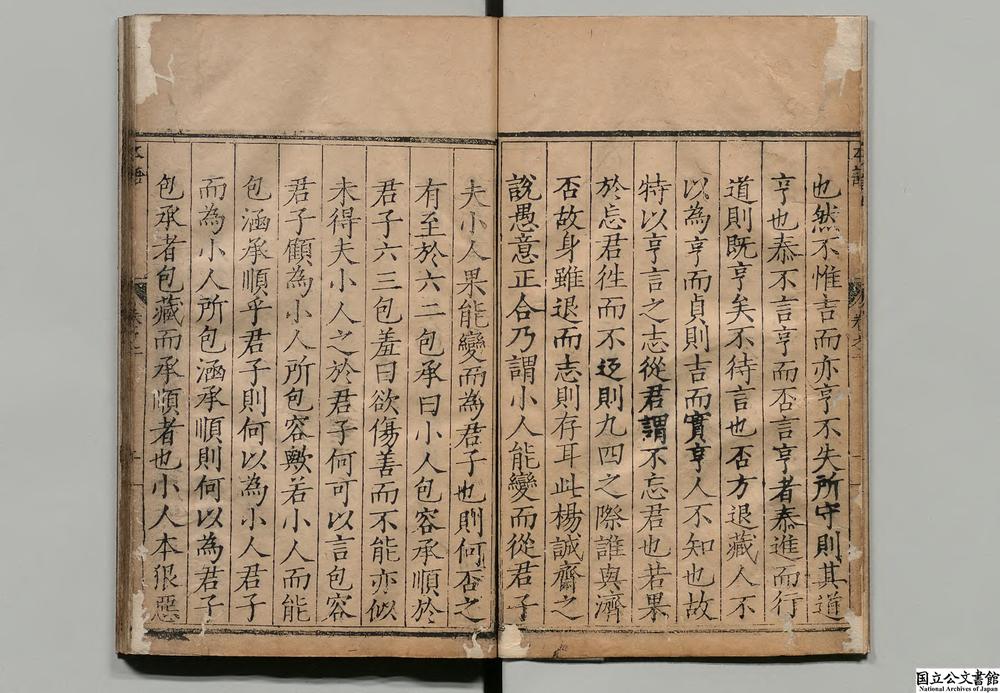 也然不惟吉而亦亨不失所守則其道
亨也泰不言亨而否言亨者泰進而行
道則既亨矣不待言也否方退藏人不
以為亨而貞則吉而實亨人不知也故
特以亨言之志從君謂不忘君也若果
於忘君徃而不返則九四之際誰與濟
否故身雖退而志則存耳此楊誠齋之
說愚意正合乃謂小人能變而從君子
夫小人果能變而為君子也則何否之
有至於六二包承曰小人包容承順於
君子六三包羞曰欲傷善而不能亦似
未得夫小人之於君子何可以言包容
君子顧為小人所包容歟若小人而能
包涵承順乎君子則何以為小人君子
而為小人所包涵承順則何以為君子
包承者包藏而承順者也小人本狠惡
国立公文書館
National Archives of Japan